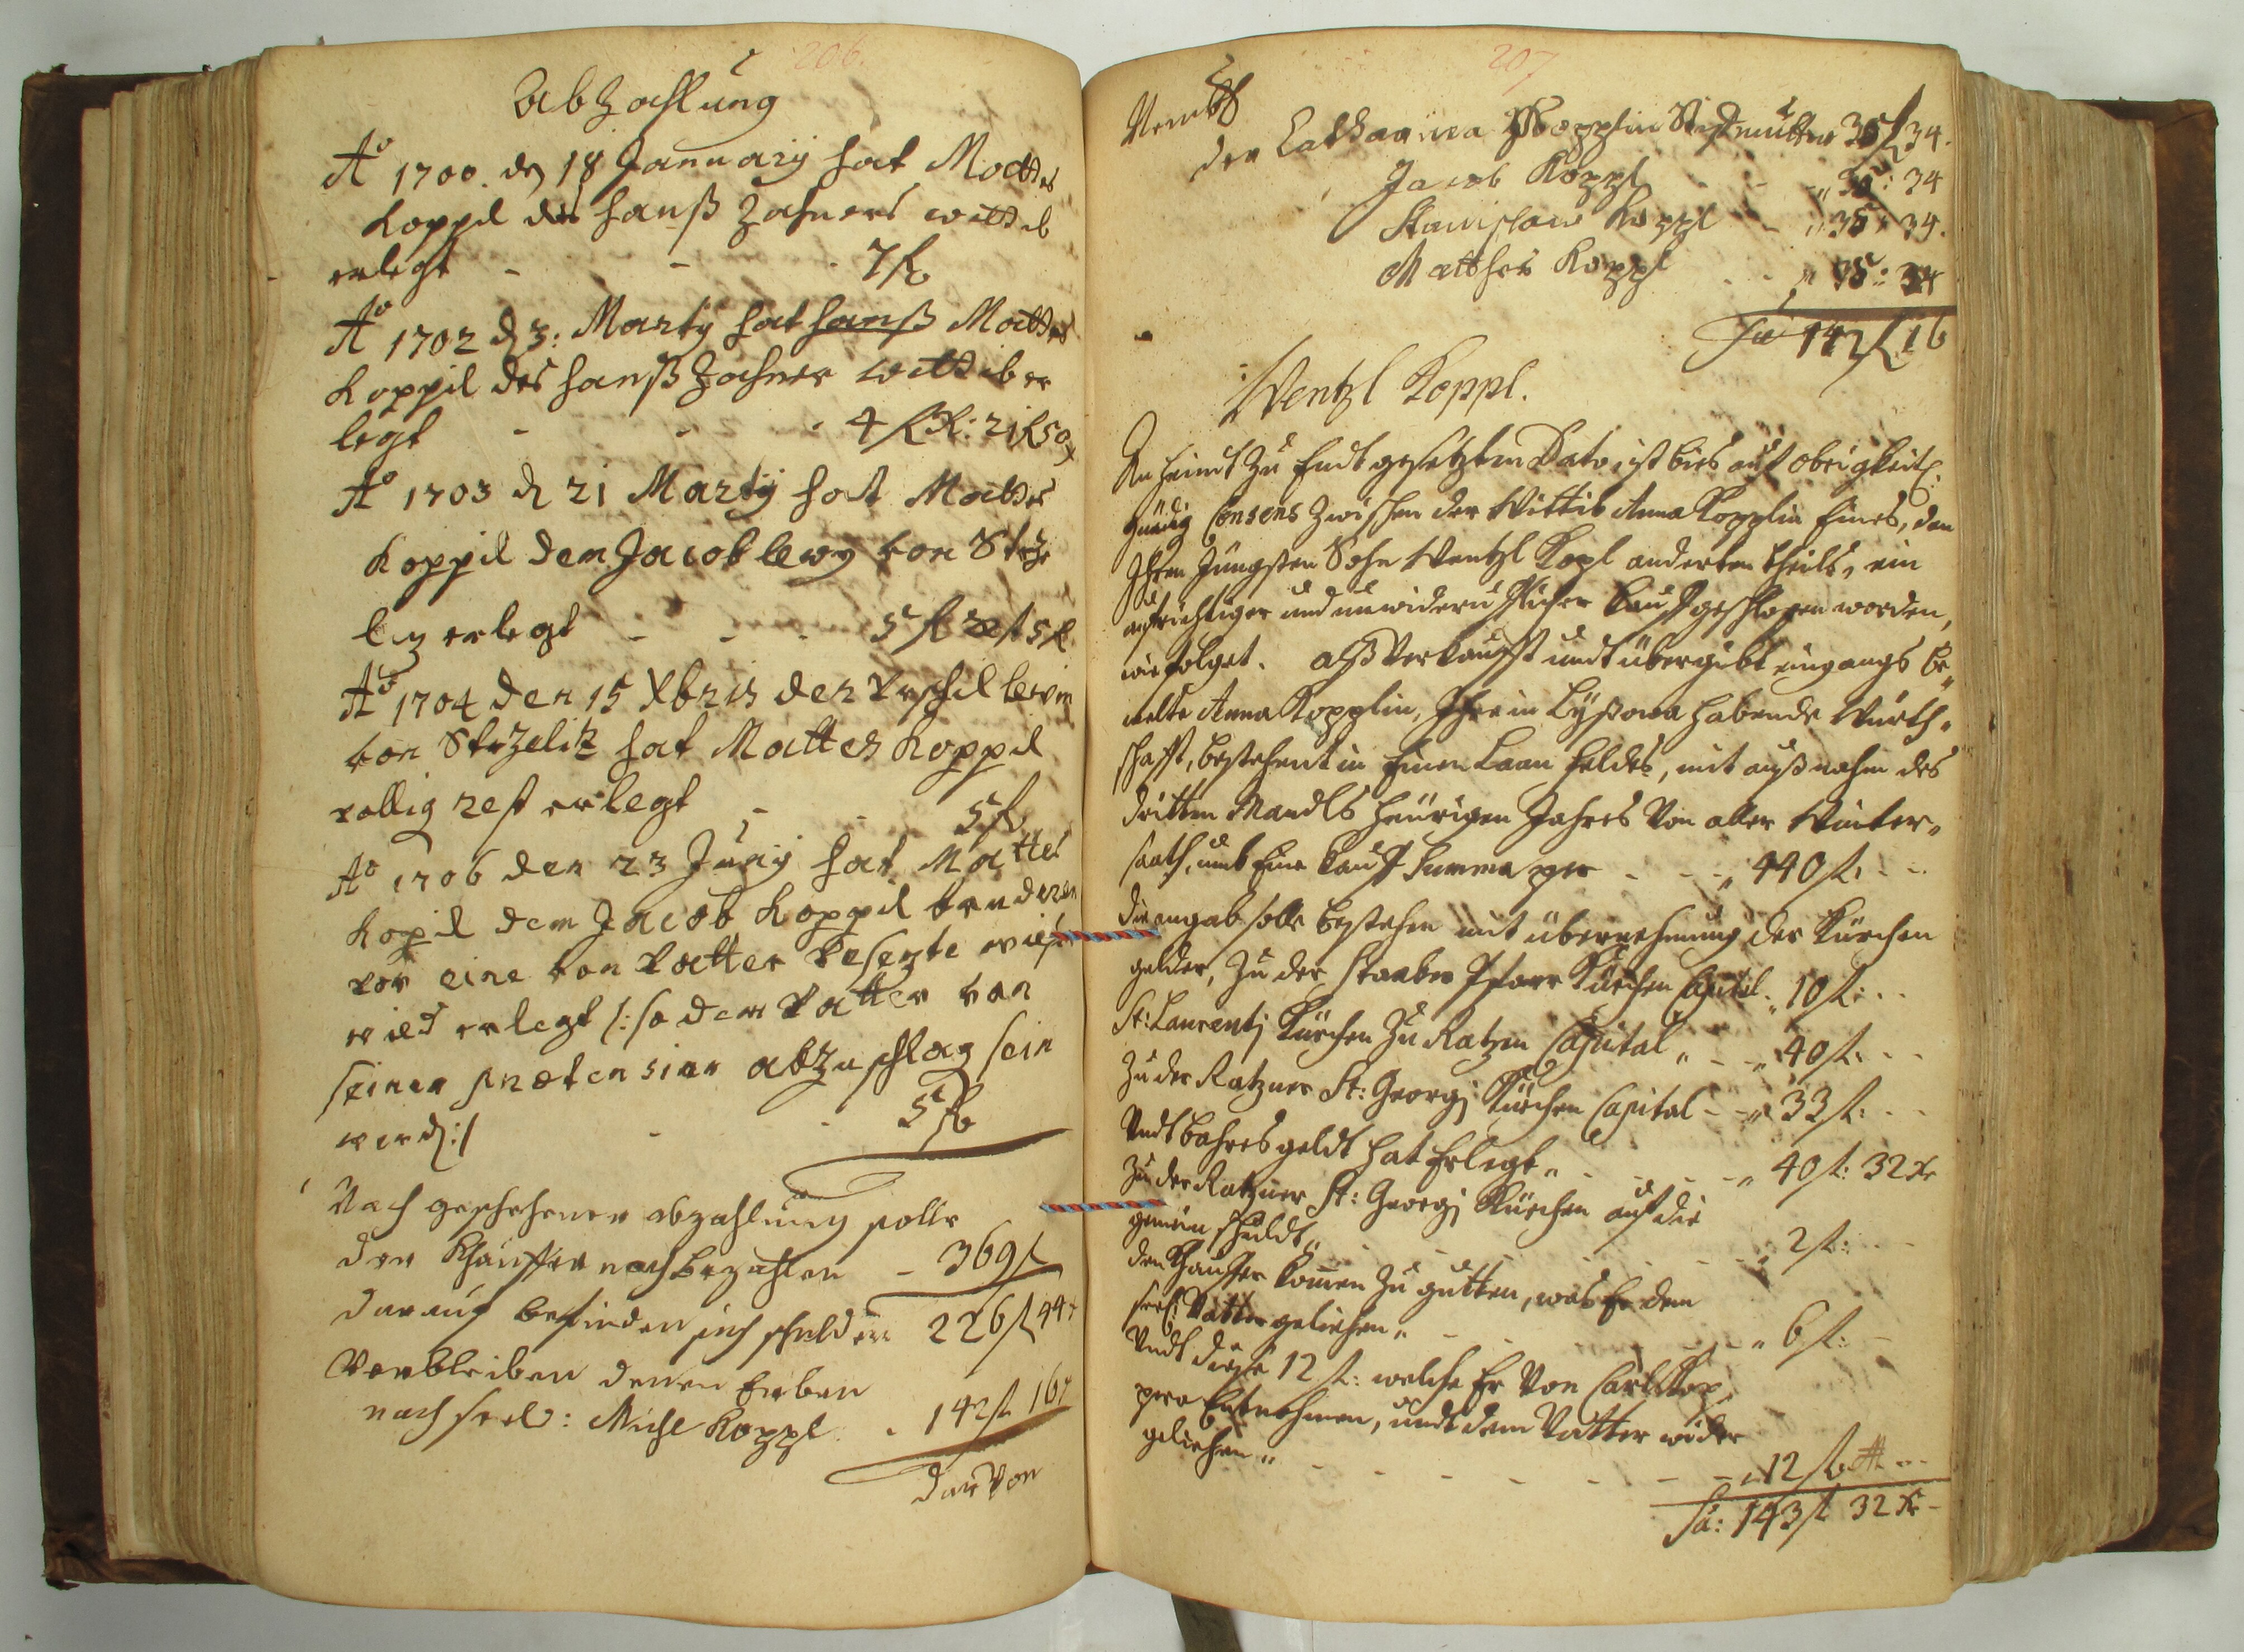 206.
Abzahlung
Aō 1700. den 18 Januarij hat Mattes
Koppil des Hanß Zahners wittib
erlegt - - - 7 fl
Aō 1702 d 3: Martij hat Hanß Mattes
Koppil des Hanß Zahner wittib er
legt - - - 4 fl
Aō 1703 d 21 Martij hat Mattes
Koppil dem Jacob lewy von Strze
liz erlegt - - - 5 fl rest 5 fl
Aō 1704 den 15 Xbris der lewin
von Strzelitz hat Mattes Koppil
vollig rest erlegt - - 5 fl
Aō 1706 den 23 Junij hat Mattes
Kopil dem Jacob Koppil
vor eine von Vatter
erlegt /: so dem Vatter von
seiner praetension abzuschlag sein
werd :/ - - 5 fl
Nach geschehener abzahlung solle
der Khauffer noch bezahlen - 369 fl
darauf befinden sich schulden 226 fl 44 x
Verbleiben denen Erben
nach seel: Michl Koppl 142 fl 16 x
darVon
207
Nembl
der Catharina Kopplin Stifmutter 35 fl 34.
Jacob Koppl - - " 35: 34
Stanislaw Koppl - " 35: 34.
Matthes Koppl - - " 35: 34
Sa 142 fl 16
Wentzl Koppl.
An heundt zu Endt gesetzten Dato ist bies auf obrigkeitl.
gnädig Consens zwischen der Wittib Anna Kopplin Eines, dan
Ihren Jüngsten Sohn Wentzl Kopl anderten theils, ein
aufrichtiger und unwiderruflicher Kauf geschlossen worden,
wie folget. alß Verkaufft undt übergibt eingangs be,,
melte Anna Kopplin, Ihre in Lyßowa habende Würth,,
schafft, bestehent in Einen Laan feldes, mit außnahm des
dritten Mandls heürigen Jahres Von aller Winter,,
saath, umb Eine Kauf Summa per - - - " 440 fl: - -
die angab solle bestehen mit übernehmung der Kürchen
gelder, zu der Staaber Pfarr Kürchen Capital " 10 fl: - -
St: Laurentj Kürchen zu Ratzin Capital " - - " 40 fl: - -
Zu der Ratzner St: Georgj Kürchen Capital - - " 33 fl: - -
Undt bahres geldt hat Erlegt " - - - - - " 40 fl: 32 Xr
Zu der Ratzner St: Georgj Kürchen auf die
gemein schuldt " - - - - - " 2 fl: - -
den Khauffer komen zu gutten, was Er dem
seel: Vatter geliehen " - - - - - " 6 fl: -
Undt diese 12 fl: welche Er Von Carl Kop
pera Entnohmen, undt dem Vatter wider
geliehen " - - - - - - - " 12 fl: - -
Sa: 143 fl 32 Xr -